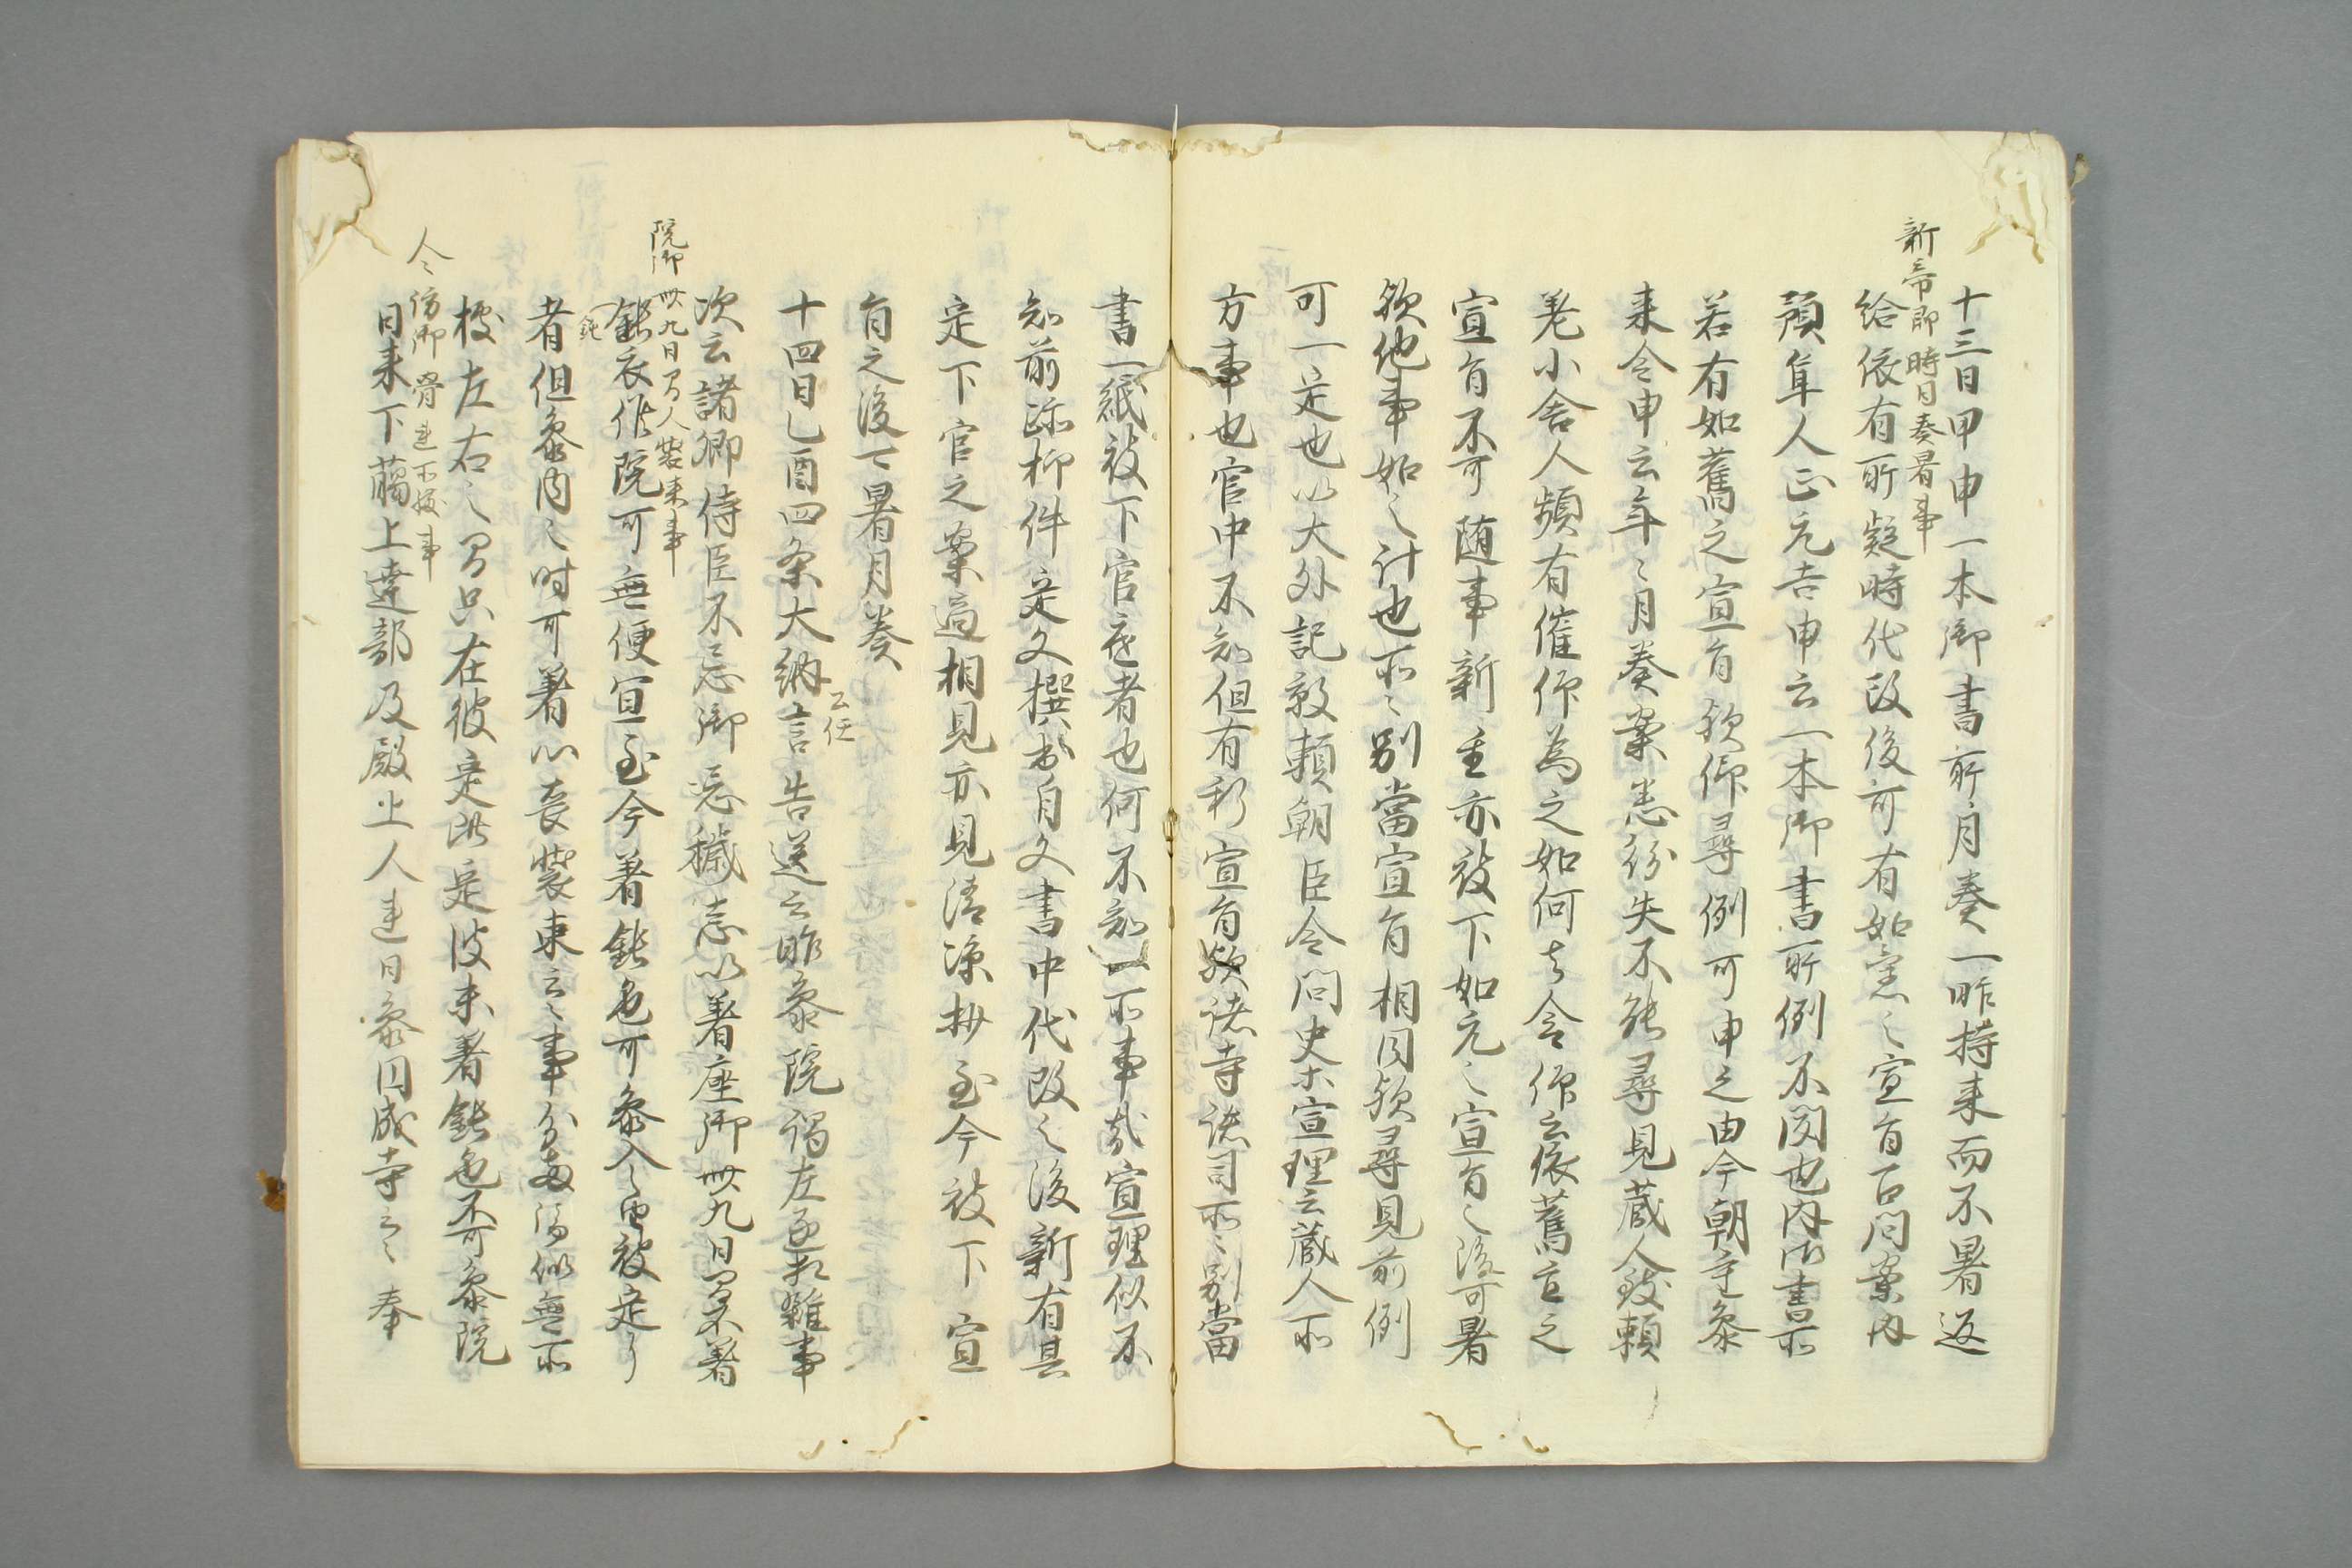 新帝即時月奏署事
十三日甲申一本御書所月奏一昨持来而不署返
給依有所疑時代改後可有如元之宣旨召問案内
預隼人正元吉申云一本御書所例不聞也内御書所
若有如舊之宣旨欤仰尋例可申之由今朝重参
来令申云年々月奏案悉紛失不能尋見蔵人致頼
差小舎人頻有催仰為之如何者令仰云依舊主之
宣旨不可随事新主亦被下如元之宣旨之後可署
欤他事如之計也所々別當宣旨相同欤尋見前例
可一定也以大外記敦頼朝臣令問史宣理云蔵人所
方事也官中不知但有新宣旨欤諸寺諸司所々別當
書一紙被下官底者也何不知一所事哉宣理似不
知前跡抑件定文撰出自文書中代改之後新有其
定下官之案過相見亦見清凉抄至今被下宣
旨之後可署月奏
十四日乙酉四条大納言公任告送云昨参院謁左丞相雑事
次云諸卿侍臣不忌御忌穢忌以着座御卌九日間不着
院御卌九日間人装束事
鈍衣候院可無便宜至今着鈍色可参入之由被定了
者但参内之時可着心喪装束云々事分両端似無所
鈍
據左右之間只在彼定此定後未着鈍色不可参院
人々仿御骨連不據事
日来下臈上達部及殿上人連日参円成寺云々奉